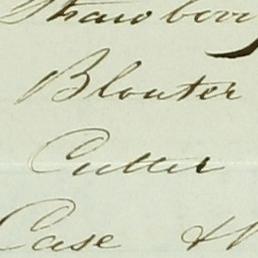 Strawberry
Blouter
Cutter
Case &